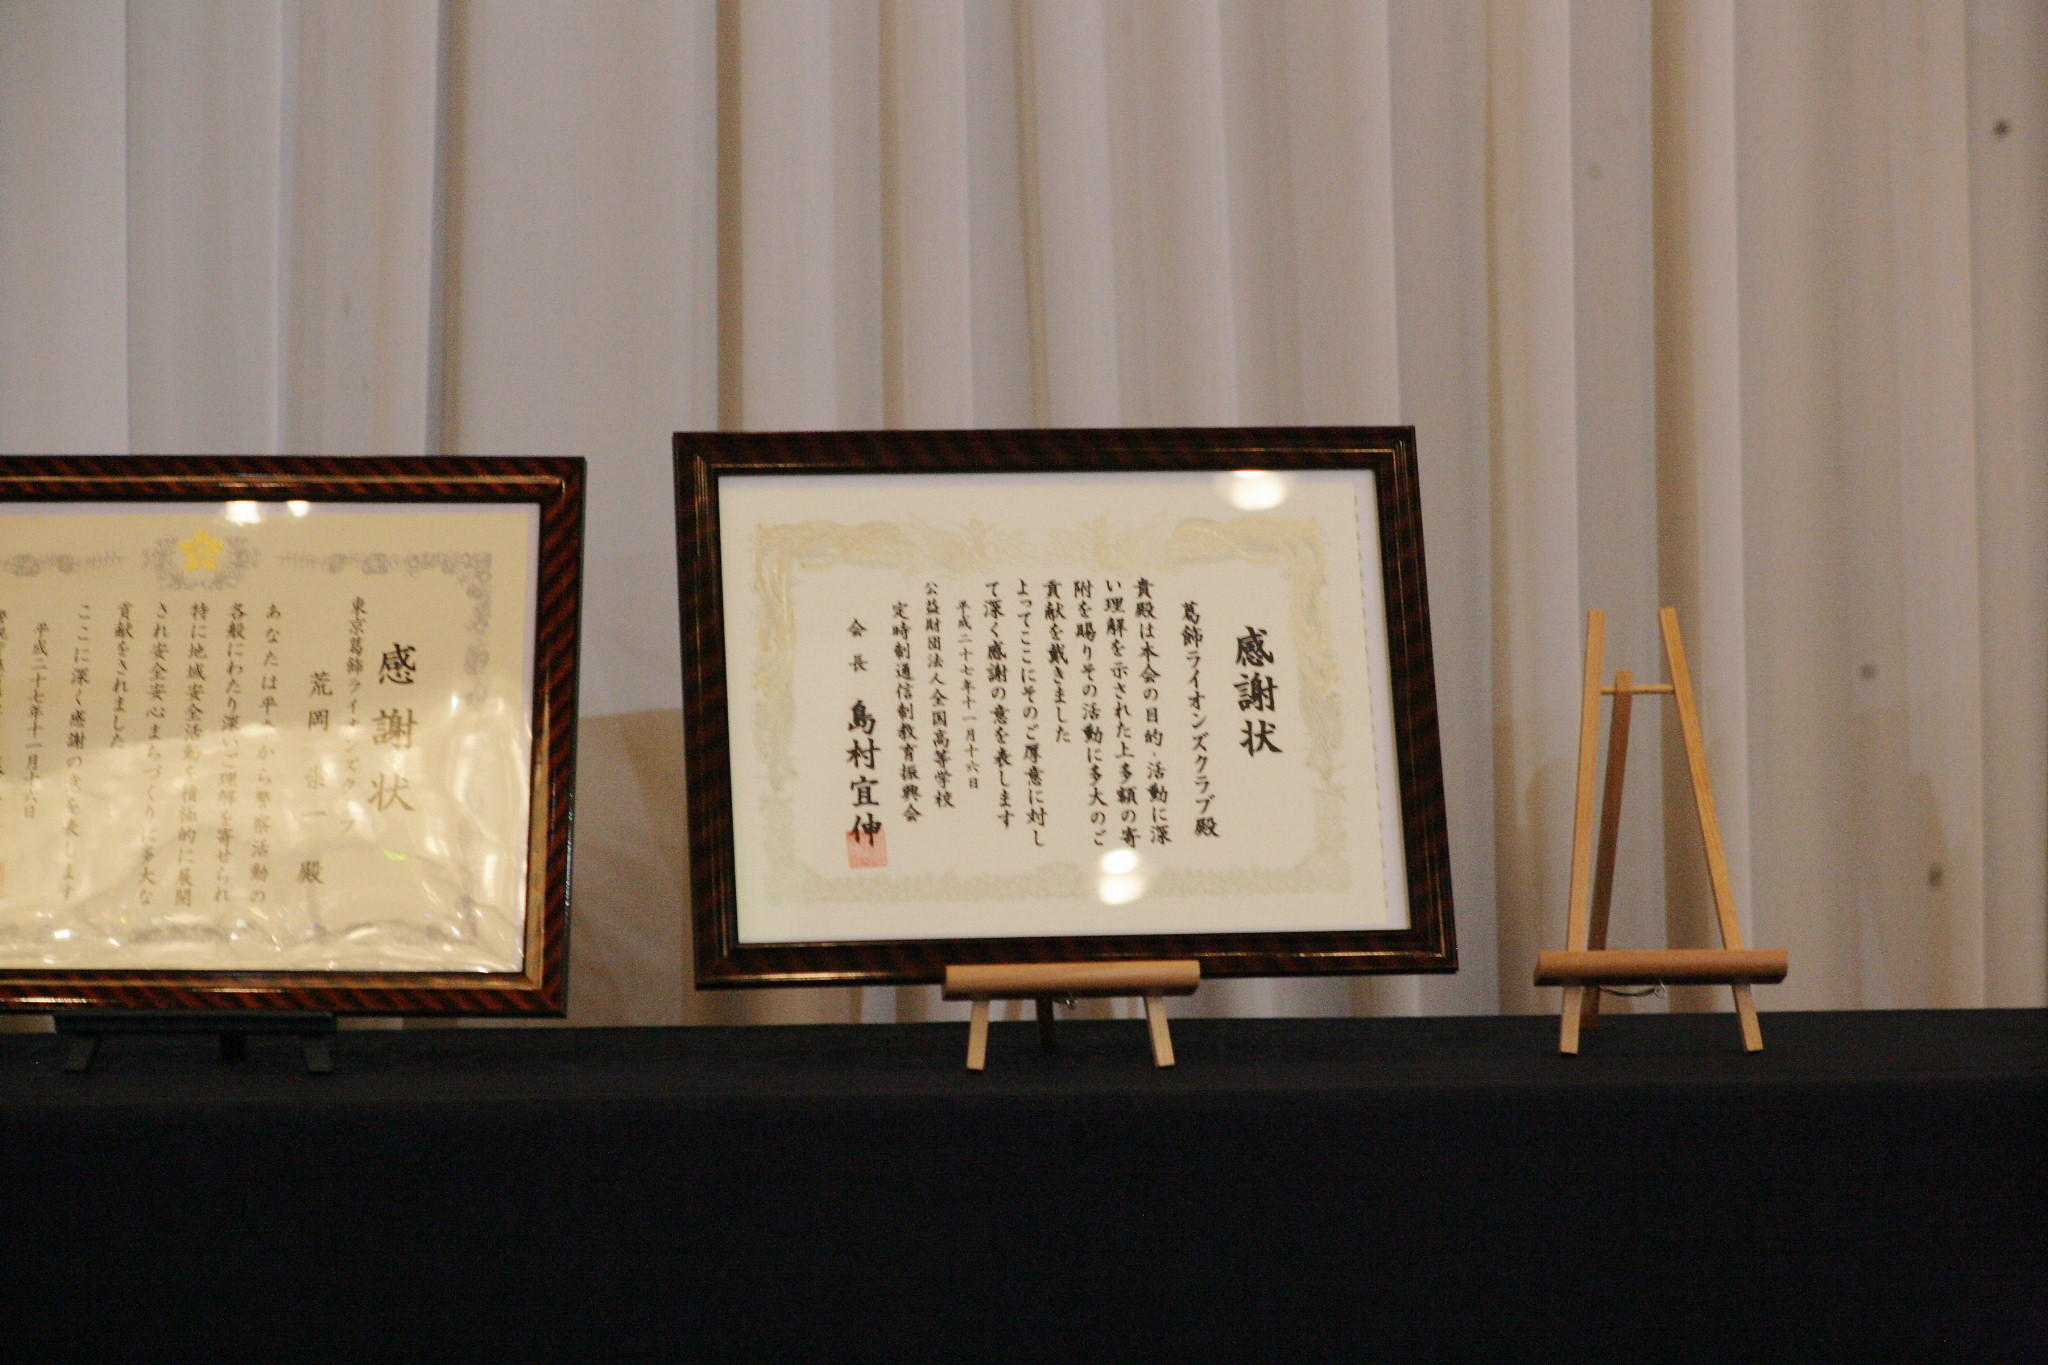 感謝状
葛飾ライオンズクラブ殿
貴殿は本会の目的・活動に深
い理解を示された上多額の寄
附を賜りその活動に多大のご
貢献を戴きました
よってここにそのご厚意に対し
て深く感謝の意を表します
平成二十七年十一月十六日
公益財団法人全国高等学校
定時制通信制教育振興会
会長 島村宜伸
感謝状
東京葛飾ライオンズクラブ
荒岡 一 殿
あなたは平 から警察活動の
各般にわたり深いご理解を寄せられ
特に地域安全活動を積極的に展開
され安全安心まちづくりに多大な
貢献をされました
ここに深く感謝の意を表します
平成二十七年十一月十六日